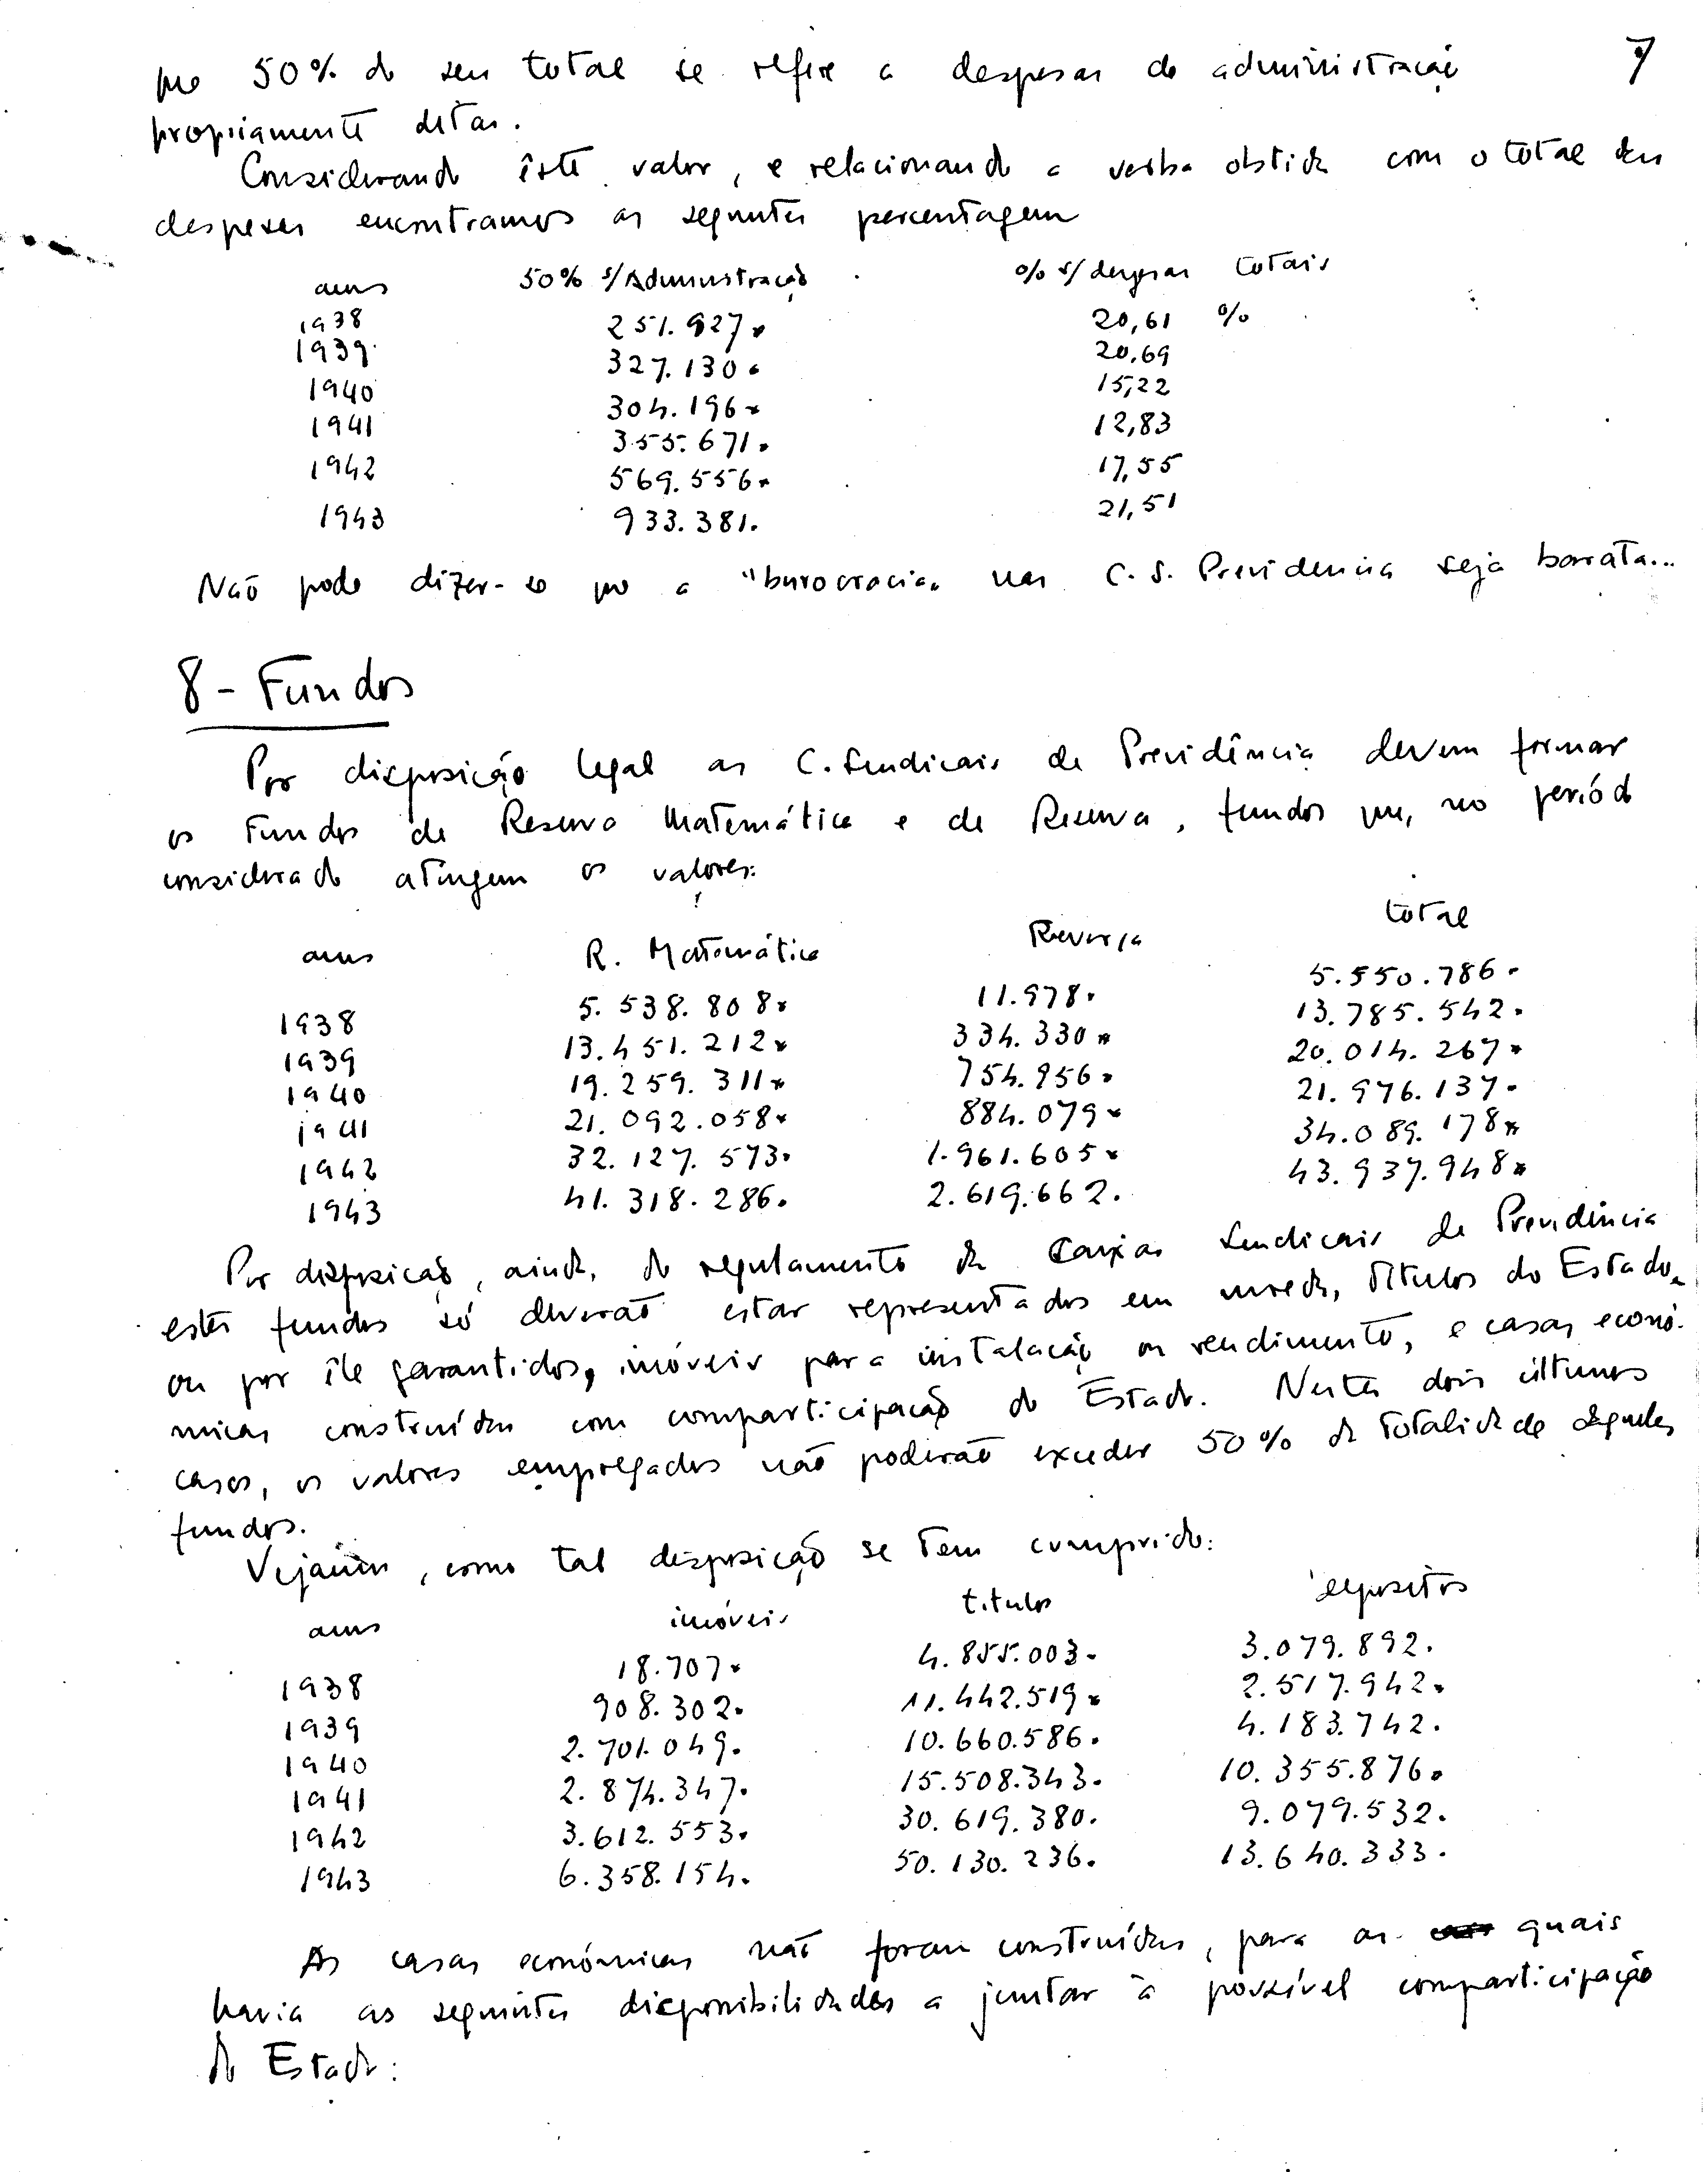 7
que 50% do seu total se refere a despesas de administração
propriamente ditas.
Considerando êste valor, e relacionando a verba obtida com o total das
despesas encontramos as seguintes percentagem
anos 50% s/Administração % s/ despesas totais
1938 251.927. 20,61 %
1939 327.130. 20,69
1940 304.196. 15,22
1941 355.671. 12,83
1942 569.556. 17,55
1943 933.381. 21,51
Não pode dizer-se que a "burocracia" nas C. S. Previdencia seja barata...
8 - Fundos
Por disposição legal as C. Sindicais de Previdência devem formar
os Fundos de Reserva Matemática e de Reserva, fundos que, no período
considerado atingem os valores:
anos R. Matemática Reserva total
1938 5.538.808. 11.978. 5.550.786.
1939 13.451.212. 334.330. 13.785.542.
1940 19.259.311. 754.956. 20.014.267.
1941 21.092.058. 884.079. 21.976.137.
1942 32.127.573. 1.961.605. 34.089.178.
1943 41.318.286. 2.619.662. 43.937.948.
Por disposição, ainda, do regulamento das Caixas Sindicais de Previdência
estes fundos só deverão estar representados em moeda, Títulos do Estado
ou por êle garantidos, imóveis para instalação ou rendimento, e casas econó-
micas construídas com comparticipação do Estado. Nestes dois últimos
casos, os valores empregados não poderão exceder 50% da totalidade daqueles
fundos.
Vejamos, como tal disposição se tem cumprido:
anos imóveis titulos depositos
1938 18.707. 4.855.003. 3.079.892.
1939 908.302. 11.442.519. 2.517.942.
1940 2.701.049. 10.660.586. 4.183.742.
1941 2.874.347. 15.508.343. 10.355.876.
1942 3.612.553. 30.619.380. 9.079.532.
1943 6.358.154. 50.130.236. 13.640.333.
As casas económicas não foram construídas, para as quais
havia as seguintes disponibilidades a juntar à possível comparticipação
do Estado: